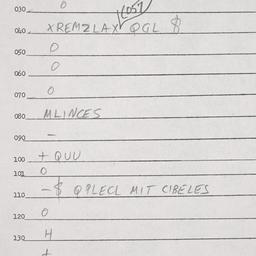 030 O
COST
040 XREMZLAX QGL $
050 O
060 O
070 O
080 MLINCES
090 –
100 + QUU
101 O
110 –$ Q9LECL MIT CIBELES
120 O
130 H
+